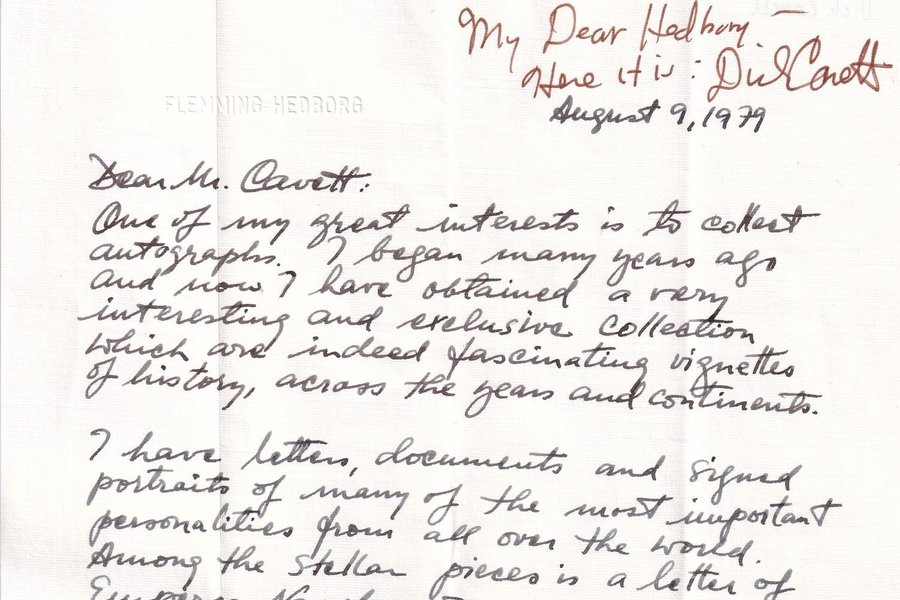 My Dear Hedborg —
Here it is: Dick Cavett
August 9, 1979
FLEMMING HEDBORG
Dear Mr. Cavett:
One of my great interests is to collect
autographs. I began many years ago
and now I have obtained a very
interesting and exclusive collection
which are indeed fascinating vignettes
of history, across the years and continents.
I have letters, documents and signed
portraits of many of the most important
personalities from all over the world.
Among the stellar pieces is a letter of
Emperor